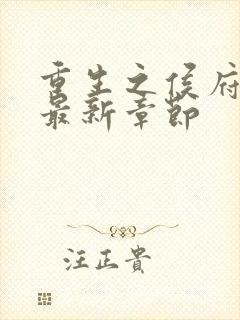 重生之侯府
最新章节
汪正贵